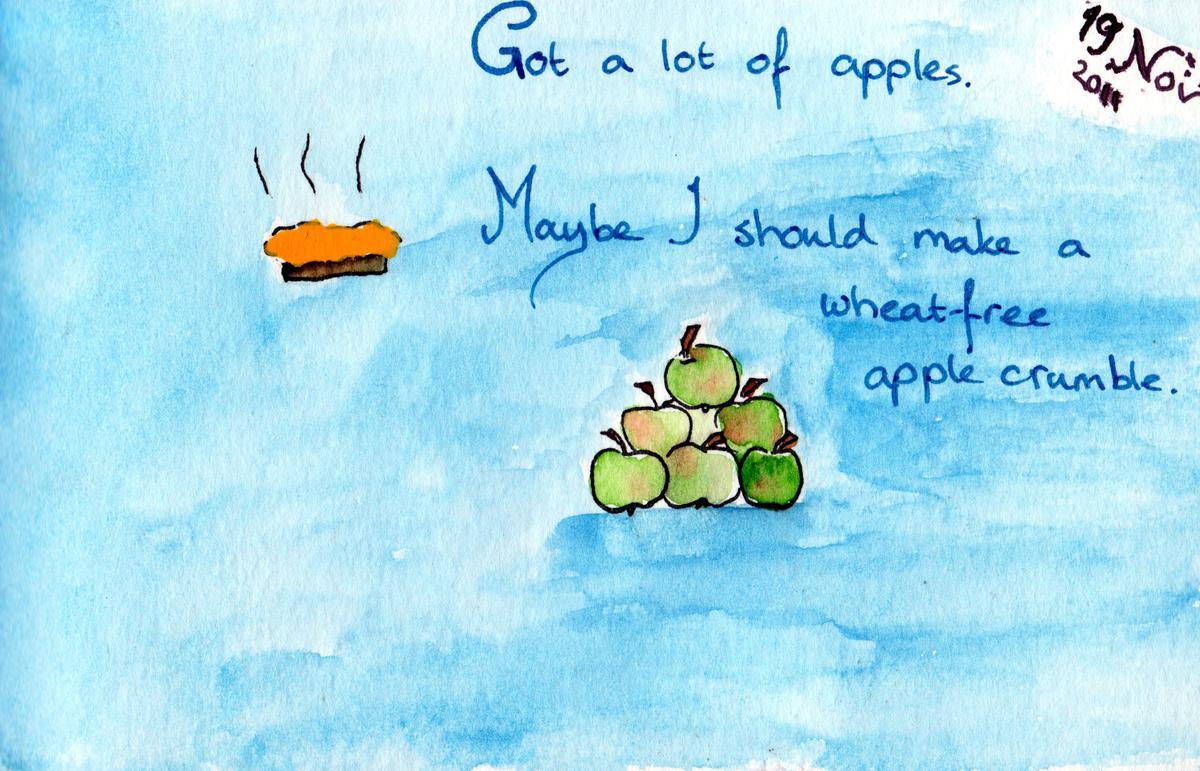 Got a lot of apples.
19 Nov
2011
Maybe I should make a
wheat-free
apple crumble.